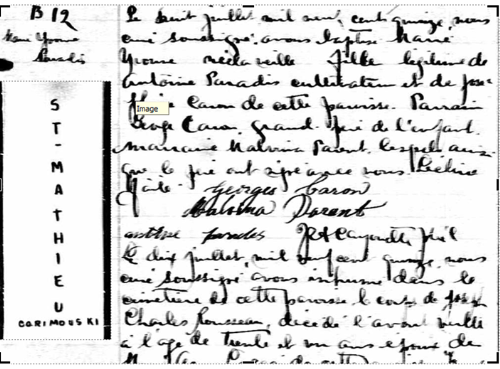 B 12
Marie Yvonne
Paradis
S
T
-
M
A
T
H
I
E
U
CO RIMOUSKI
Le huit juillet mil neuf cent quinze, nous
curé soussigné avons baptisé Marie
Yvonne née la veille fille légitime de
Antoine Paradis cultivateur et de José-
phine Caron de cette paroisse. Parrain
Image
George Caron, grand-père de l'enfant
Marraine Malvina Parent, lesquels ainsi
que le père ont signé avec nous. Lecture
faite.
Georges Caron
Malvina Parent
antoine paradis
Le dix juillet, mil neuf cent quinze, nous
curé soussigné avons inhumé dans le
cimetière de cette paroisse le corps de Joseph
Charles Rousseau, décédé l'avant veille
à l'age de trente et un ans époux de